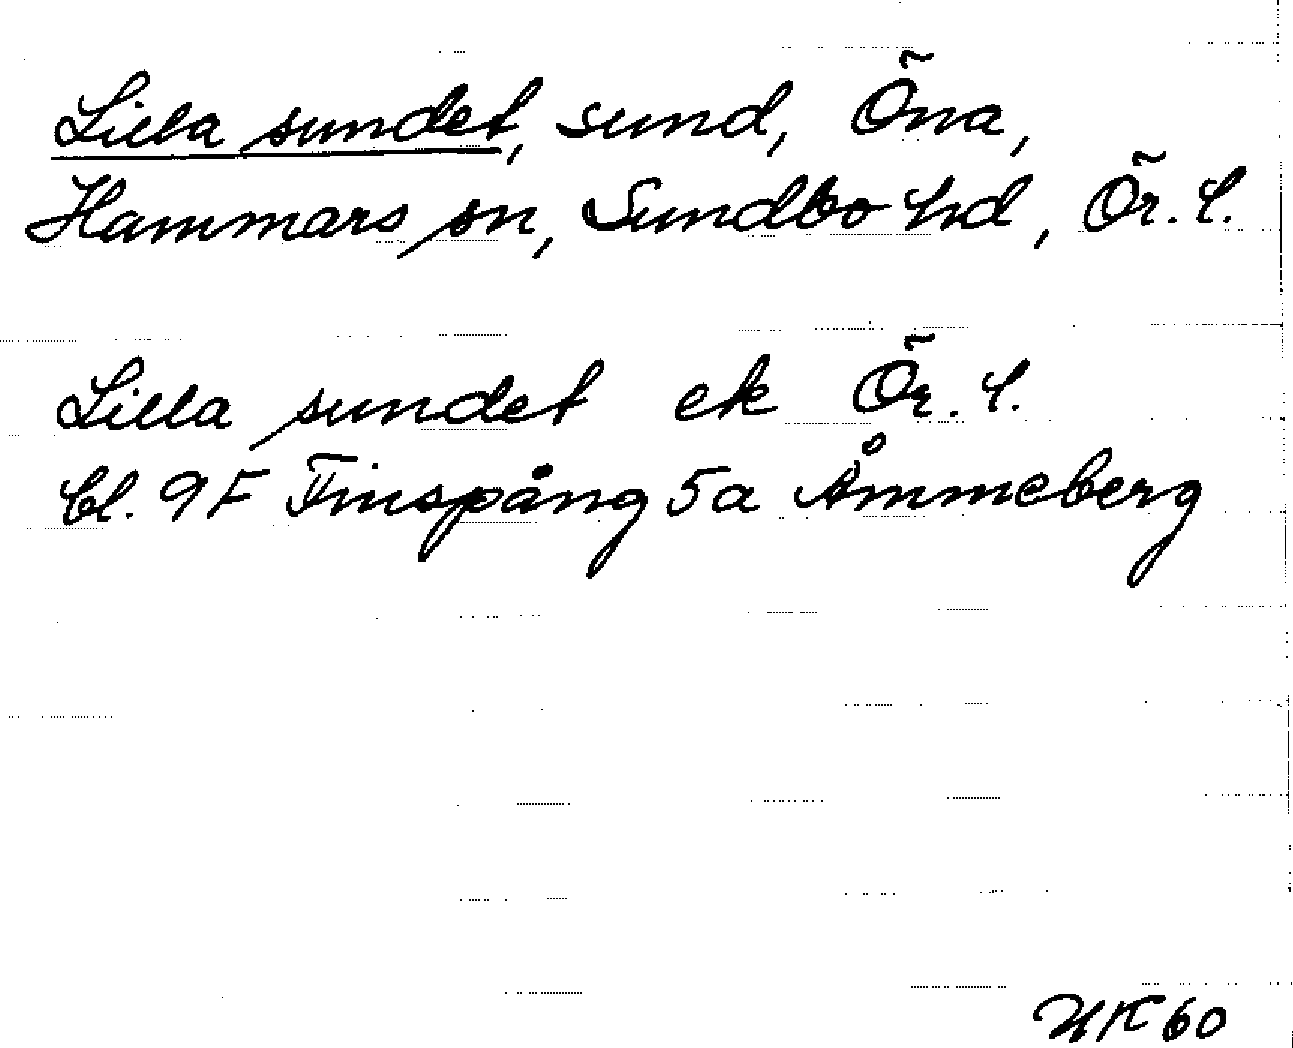 Lilla sundet, sund, Öna,
Hammars sn, Sundbo hd, Ör. l.
Lilla sundet ek Ör. l.
bl. 9F Finspång 5a Åmmeberg
HK 60